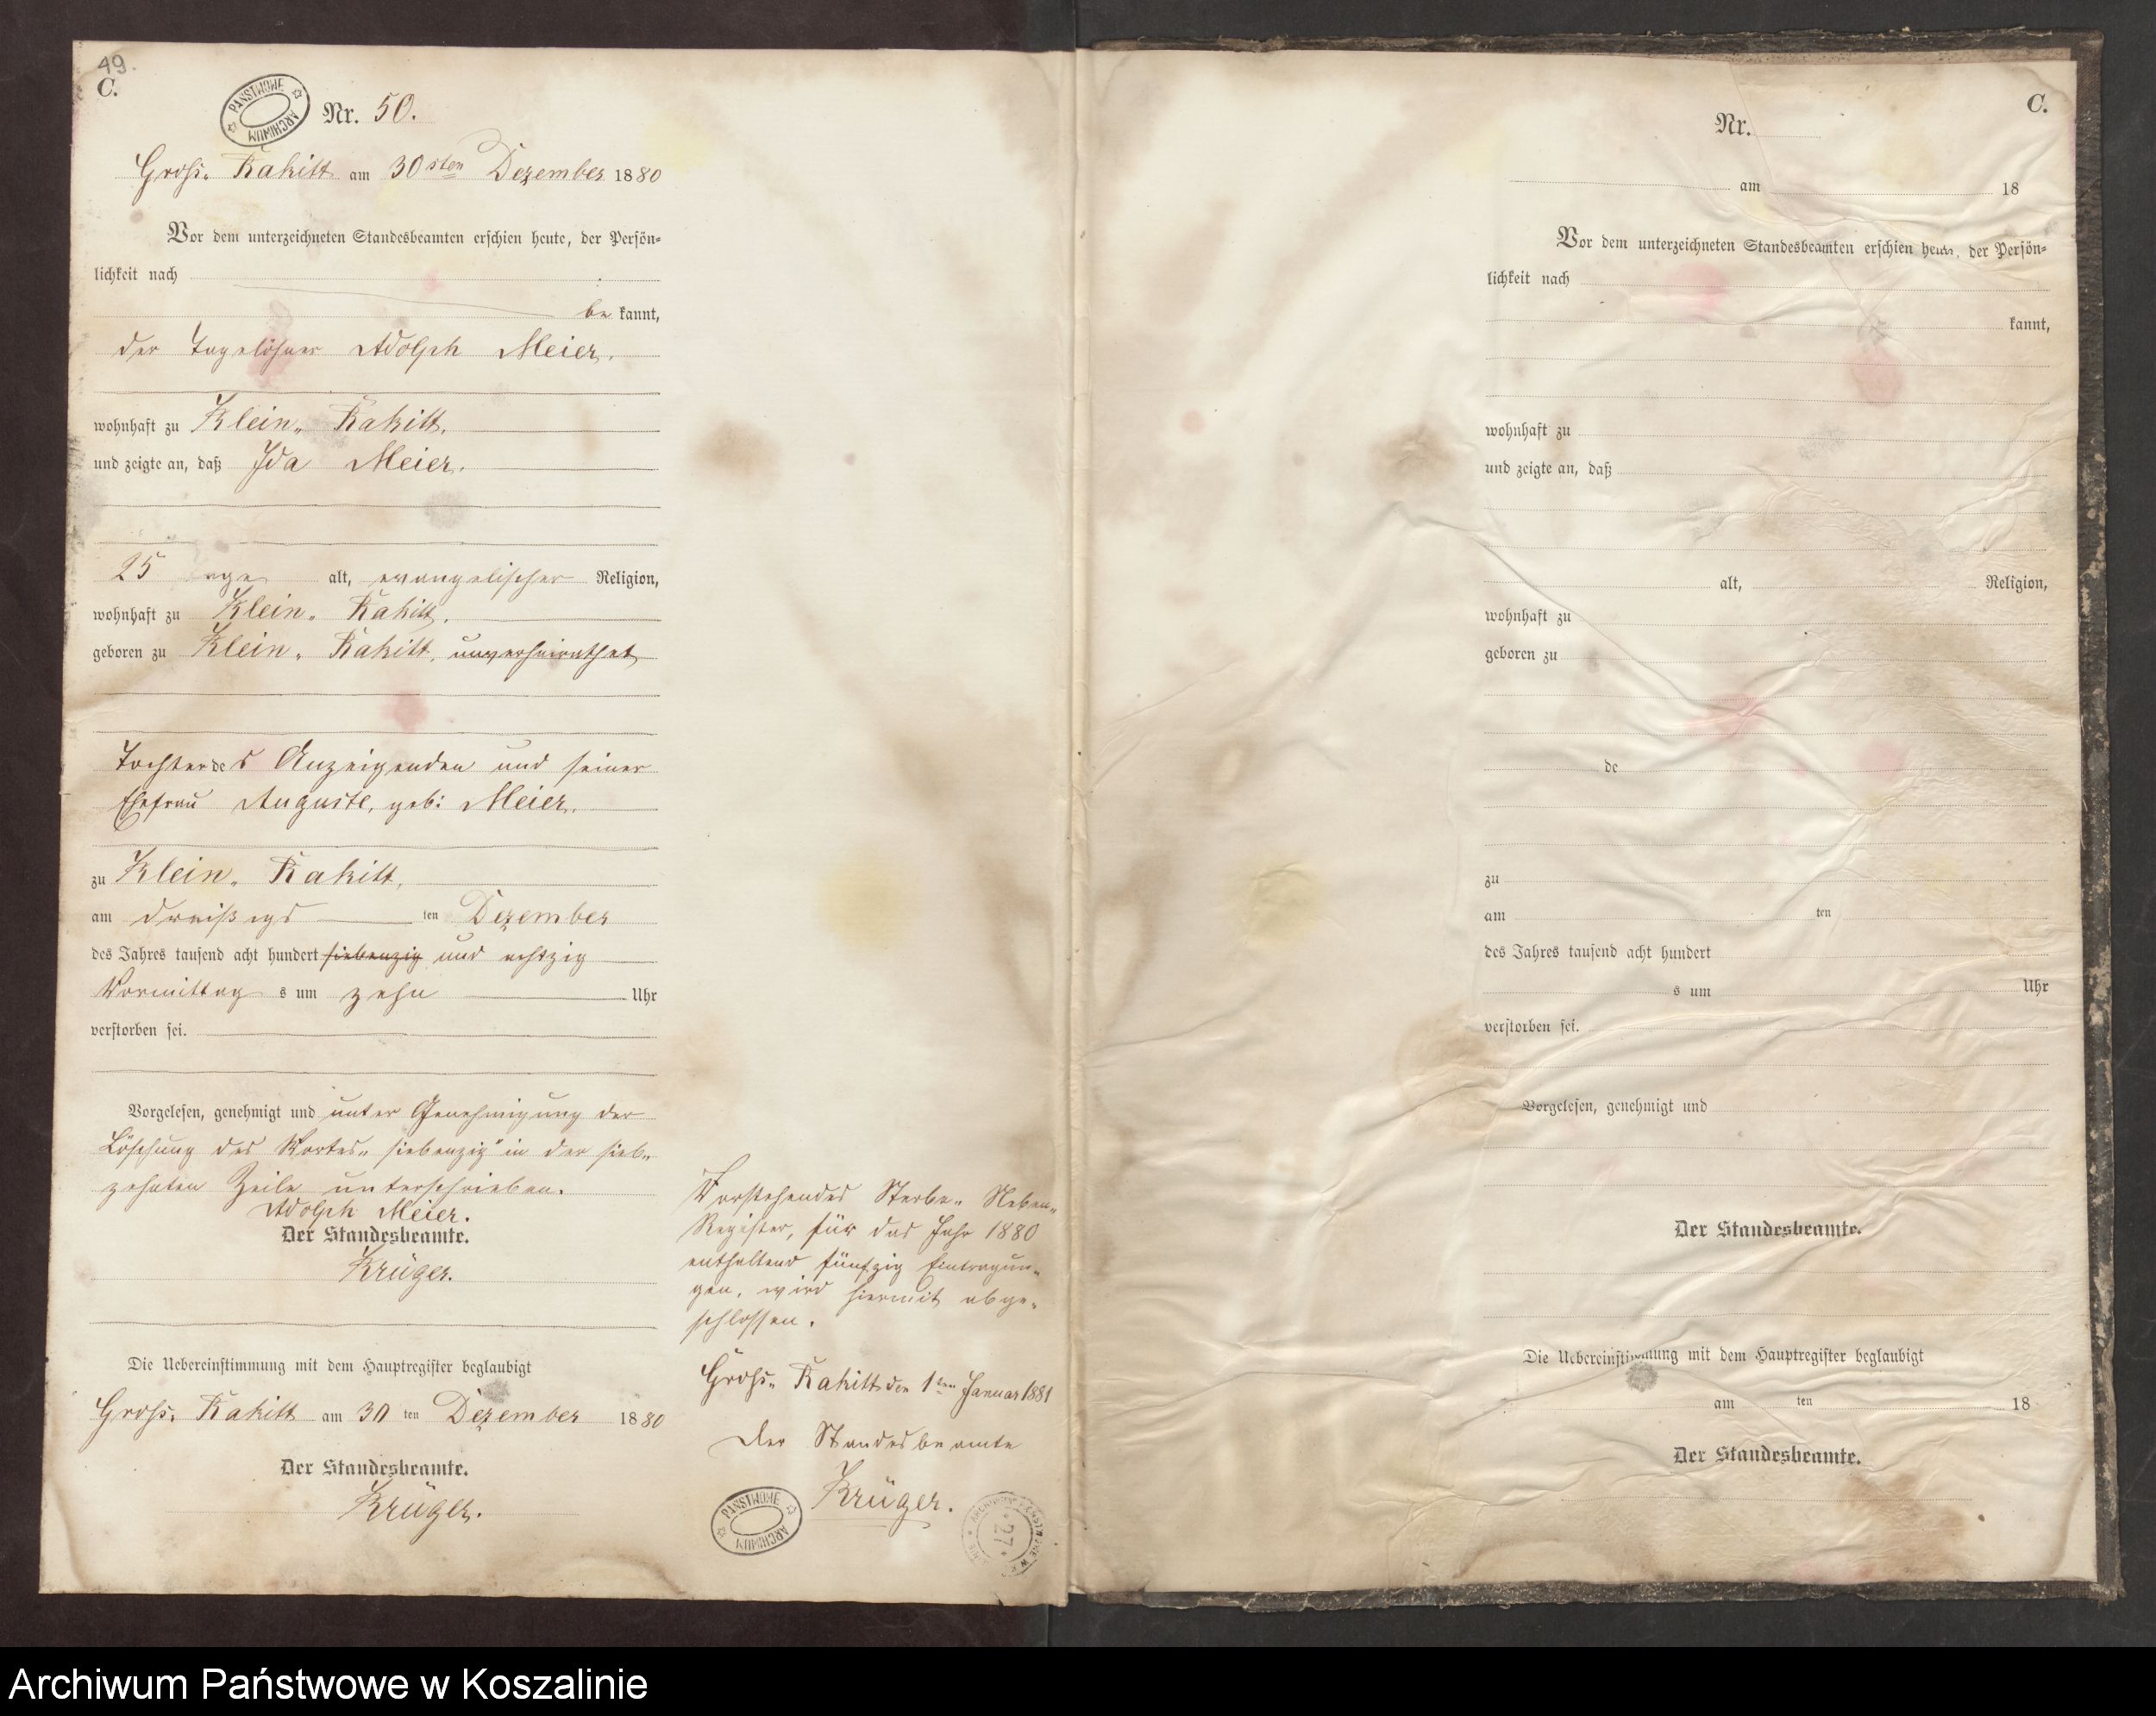 49.
C.
PAŃSTWOWE ARCHIWUM
Nr. 50.
Groß- Rakitt am 30sten Dezember 1880
Vor dem unterzeichneten Standesbeamten erschien heute, der Persön-
lichkeit nach
be kannt,
der Tagelöhner Adolph Meier.
wohnhaft zu Klein- Rakitt.
und zeigte an, daß Ida Meier.
25 Tage alt, evangelischer Religion,
wohnhaft zu Klein- Rakitt.
geboren zu Klein- Rakitt, unverheirathet
Tochter des Anzeigenden und seiner
Ehefrau Auguste, geb: Meier.
zu Klein- Rakitt,
am dreißigs ten Dezember
des Jahres tausend acht hundert siebenzig und achtzig
Vormittag s um zehn Uhr
verstorben sei.
Vorgelesen, genehmigt und unter Genehmigung der
Löschung des Wortes „siebenzig" in der sieb-
zehnten Zeile unterschrieben.
Adolph Meier.
Der Standesbeamte.
Krüger.
Die Uebereinstimmung mit dem Hauptregister beglaubigt
Groß- Rakitt am 30 ten Dezember 1880
Der Standesbeamte.
Krüger.
Vorstehendes Sterbe- Neben-
Register, für das Jahr 1880
enthaltend fünfzig Eintragun-
gen, wird hiermit abge-
schlossen.
Groß- Rakitt den 1ten Januar 1881
Der Standesbeamte
Krüger.
PAŃSTWOWE ARCHIWUM
27
C.
Nr.
am 18
Vor dem unterzeichneten Standesbeamten erschien heute, der Persön-
lichkeit nach
kannt,
wohnhaft zu
und zeigte an, daß
alt, Religion,
wohnhaft zu
geboren zu
de
zu
am ten
des Jahres tausend acht hundert
s um Uhr
verstorben sei.
Vorgelesen, genehmigt und
Der Standesbeamte.
Die Uebereinstimmung mit dem Hauptregister beglaubigt
am ten 18
Der Standesbeamte.
Archiwum Państwowe w Koszalinie